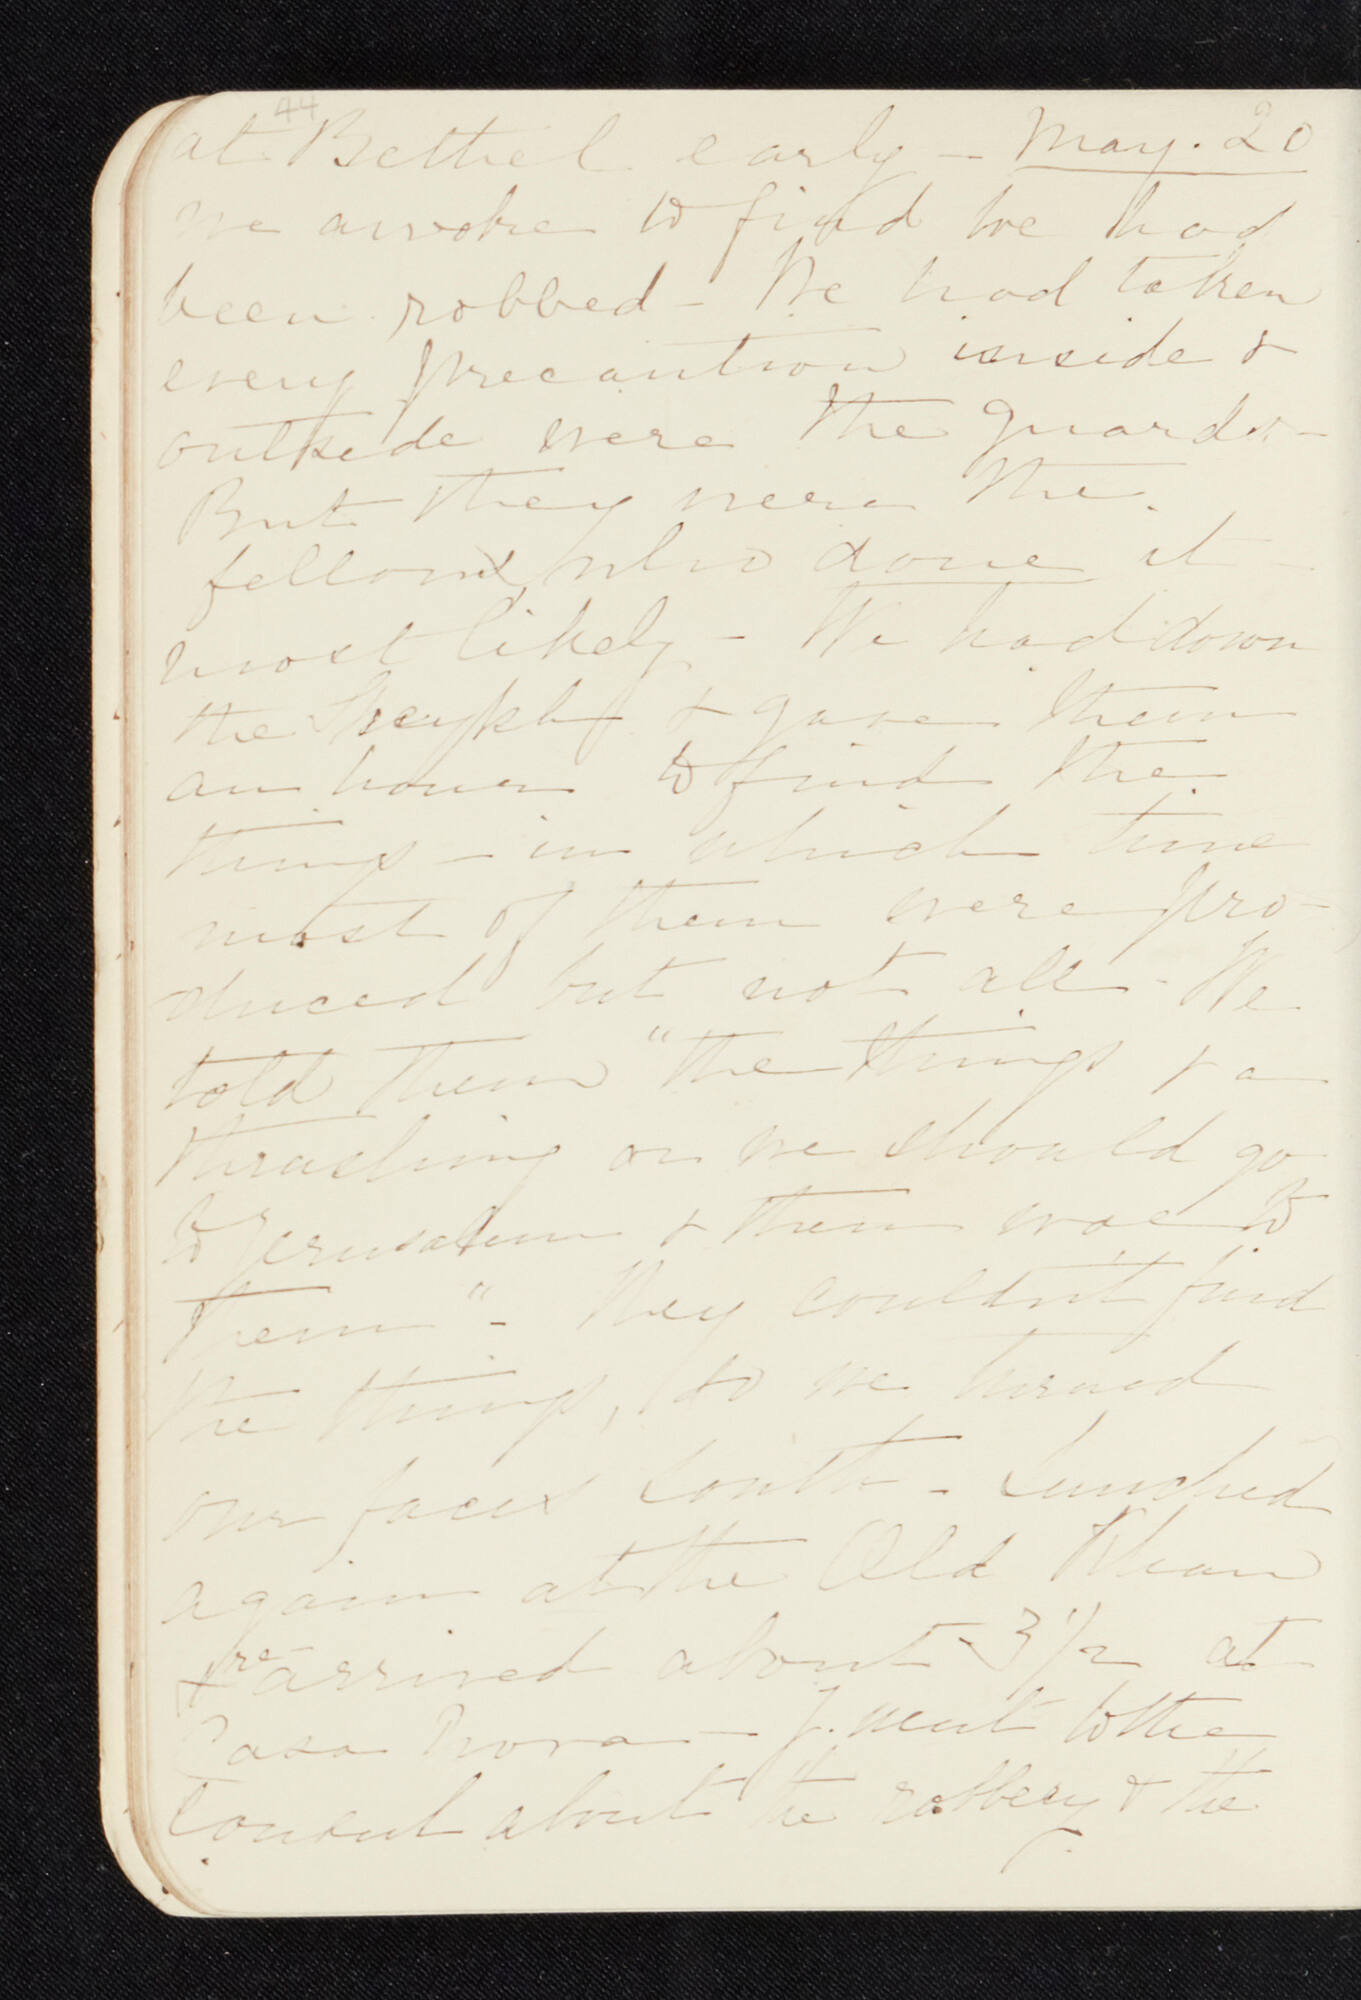 44
at Bethel early - May. 20
we awoke to find we had
been robbed - We had taken
every precaution inside &
outside were the guards -
But they were the
fellows who done it -
most likely - We had down
the & gave them
an hour to find the
things - in which time
most of them were pro-
duced but not all - We
told them "the things & a
thrashing or we should go
to Jerusalem & then woe to
them" - They couldn't find
the things, so we turned
our faces south - Lunched
again at the Old Khan
& re-arrived about 3 1/2 at
Casa Nova - J. went to the
Consul about the robbery & the